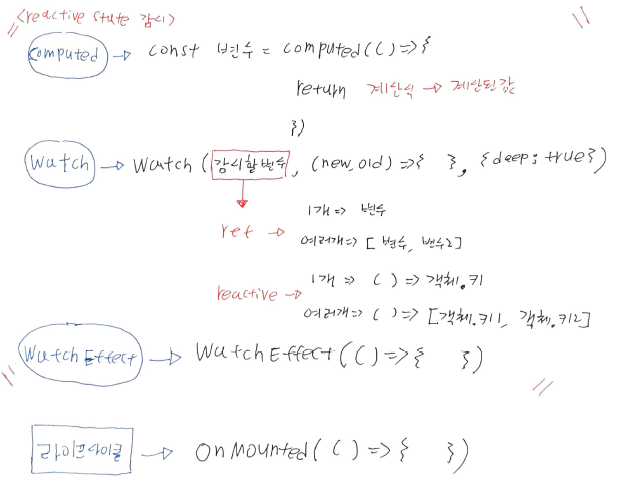 <reactive state 감시>
computed → const 변수 = computed(()=>{
return 계산식 → 계산된 값
})
watch → watch(감시할변수, (new, old)=>{ }, {deep: true})
1개 => 변수
ref →
여러개 => [변수, 변수2]
1개 => ( ) => 객체.키
reactive →
여러개 => ( ) => [객체.키1, 객체.키2]
WatchEffect → WatchEffect(()=>{ })
라이프사이클 → onMounted(( )=>{ })